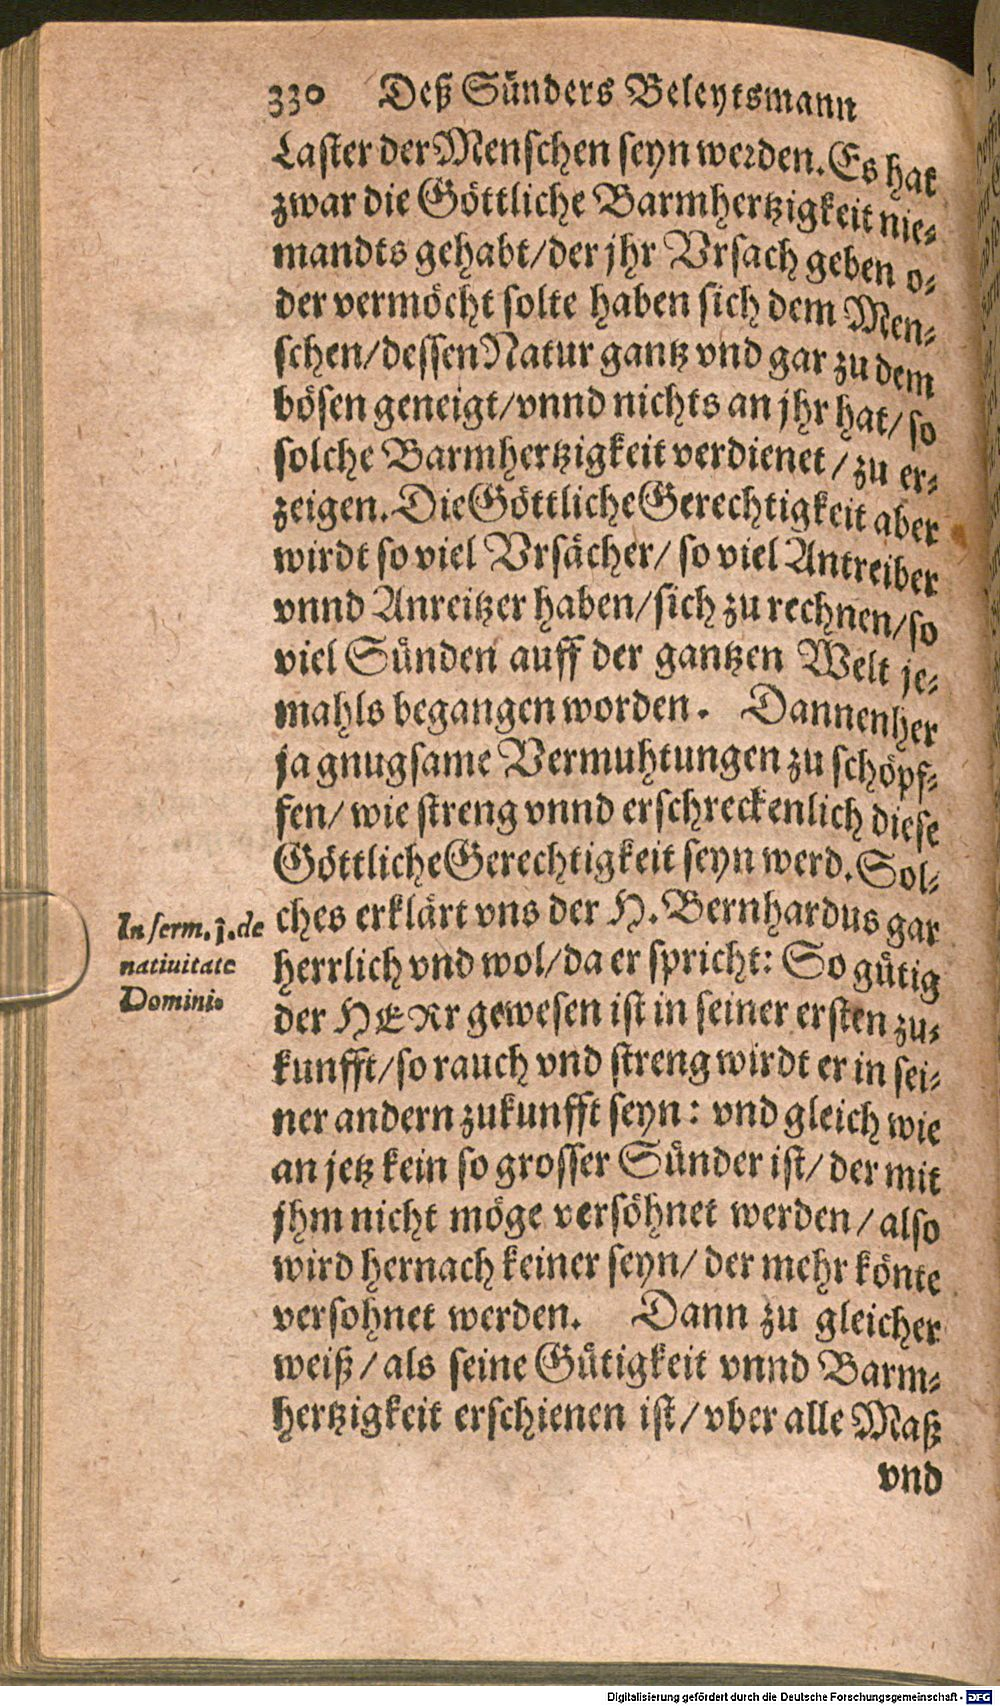 330 Deß Sünders Beleytsmann
Laster der Menschen seyn werden. Es hat
zwar die Göttliche Barmhertzigkeit nie-
mandts gehabt/der jhr Vrsach geben o-
der vermöcht solte haben sich dem Men-
schen/dessen Natur gantz vnd gar zu dem
bösen geneigt/vnnd nichts an jhr hat/so
solche Barmhertzigkeit verdienet/zu er-
zeigen. Die Göttliche Gerechtigkeit aber
wirdt so viel Vrsächer/so viel Antreiber
vnnd Anreitzer haben/sich zu rechnen/so
viel Sünden auff der gantzen Welt je-
mahls begangen worden. Dannenher
ja gnugsame Vermuhtungen zu schöpf-
fen/wie streng vnnd erschreckenlich diese
Göttliche Gerechtigkeit seyn werd. Sol-
ches erklärt vns der H. Bernhardus gar
herrlich vnd wol/da er spricht: So gütig
der HERr gewesen ist in seiner ersten zu-
kunfft/so rauch vnd streng wirdt er in sei-
ner andern zukunfft seyn: vnd gleich wie
an jetz kein so grosser Sünder ist/der mit
jhm nicht möge versöhnet werden/also
wird hernach keiner seyn/der mehr könte
versohnet werden. Dann zu gleicher
weiß/als seine Gütigkeit vnnd Barm-
hertzigkeit erschienen ist/vber alle Maß
vnd
In serm. 1. de
natiuitate
Domini.
Digitalisierung gefördert durch die Deutsche Forschungsgemeinschaft - DFG